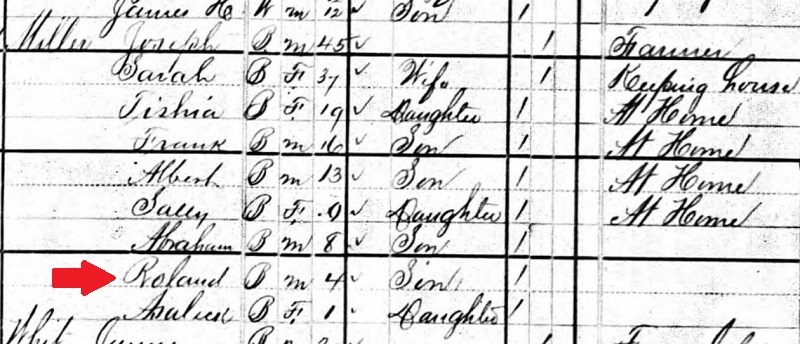 James H W m 12 Son 1
Miller Joseph B m 45 ✓ 1 Farmer
Sarah B F 37 ✓ Wife 1 Keeping house
Tishia B F 19 ✓ Daughter 1 At Home
Frank B m 16 ✓ Son 1 At Home
Albert B m 13 ✓ Son 1 At Home
Sally B F ✓ Daughter 1 At Home
Abraham B m 8 ✓ Son 1
Roland B m 4 ✓ Son 1
B F 1 ✓ Daughter 1